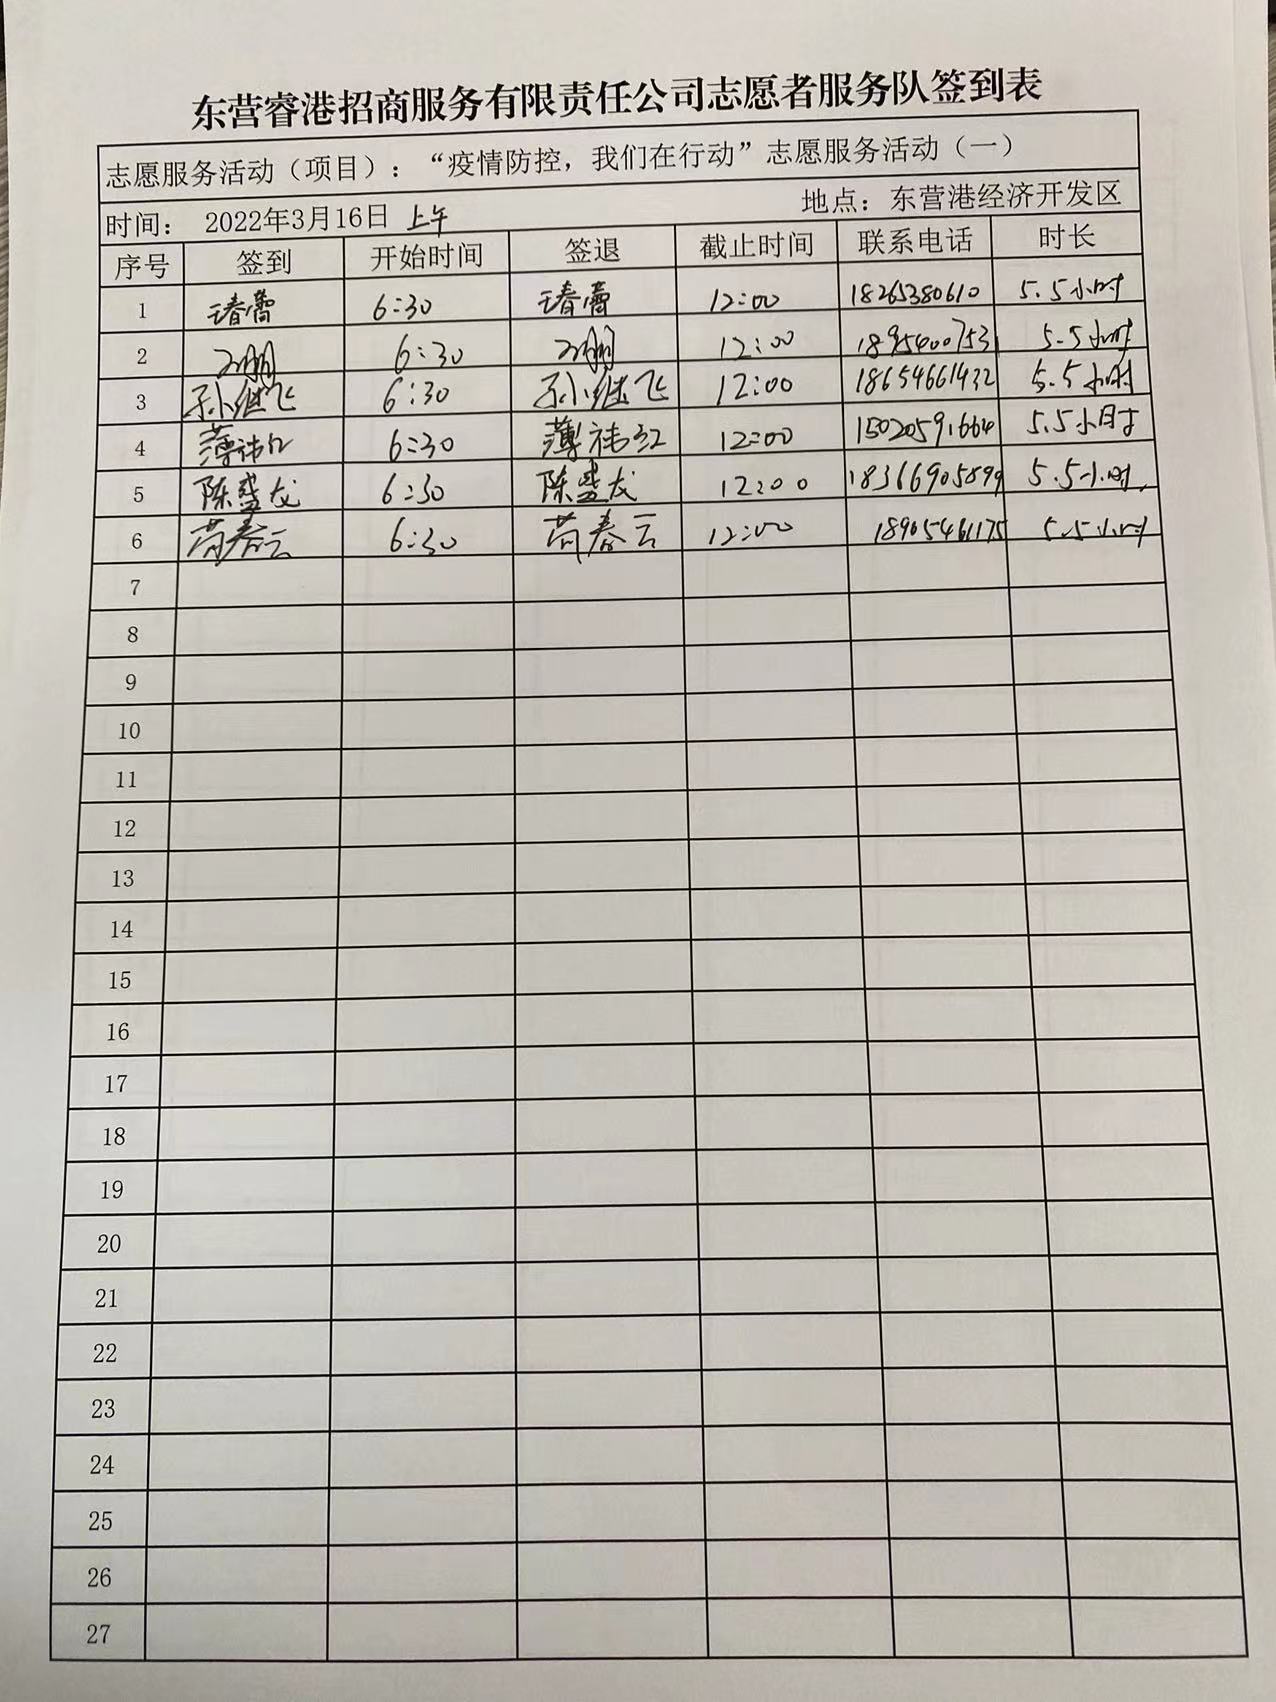 东营睿港招商服务有限责任公司志愿者服务队签到表
志愿服务活动（项目）：“疫情防控，我们在行动”志愿服务活动（一）
时间： 2022年3月16日 上午 地点：东营港经济开发区
序号 签到 开始时间 签退 截止时间 联系电话 时长
1 6:30 12:00 18265380610 5.5小时
2 6:30 12:00 5.5小时
3 孙继飞 6:30 孙继飞 12:00 18654661432 5.5小时
4 6:30 12:00 15020591664 5.5小时
5 陈盛龙 6:30 陈盛龙 12:00 18366905899 5.5小时.
6 苟春云 6:30 苟春云 12:00 18905461175 5.5小时
7
8
9
10
11
12
13
14
15
16
17
18
19
20
21
22
23
24
25
26
27